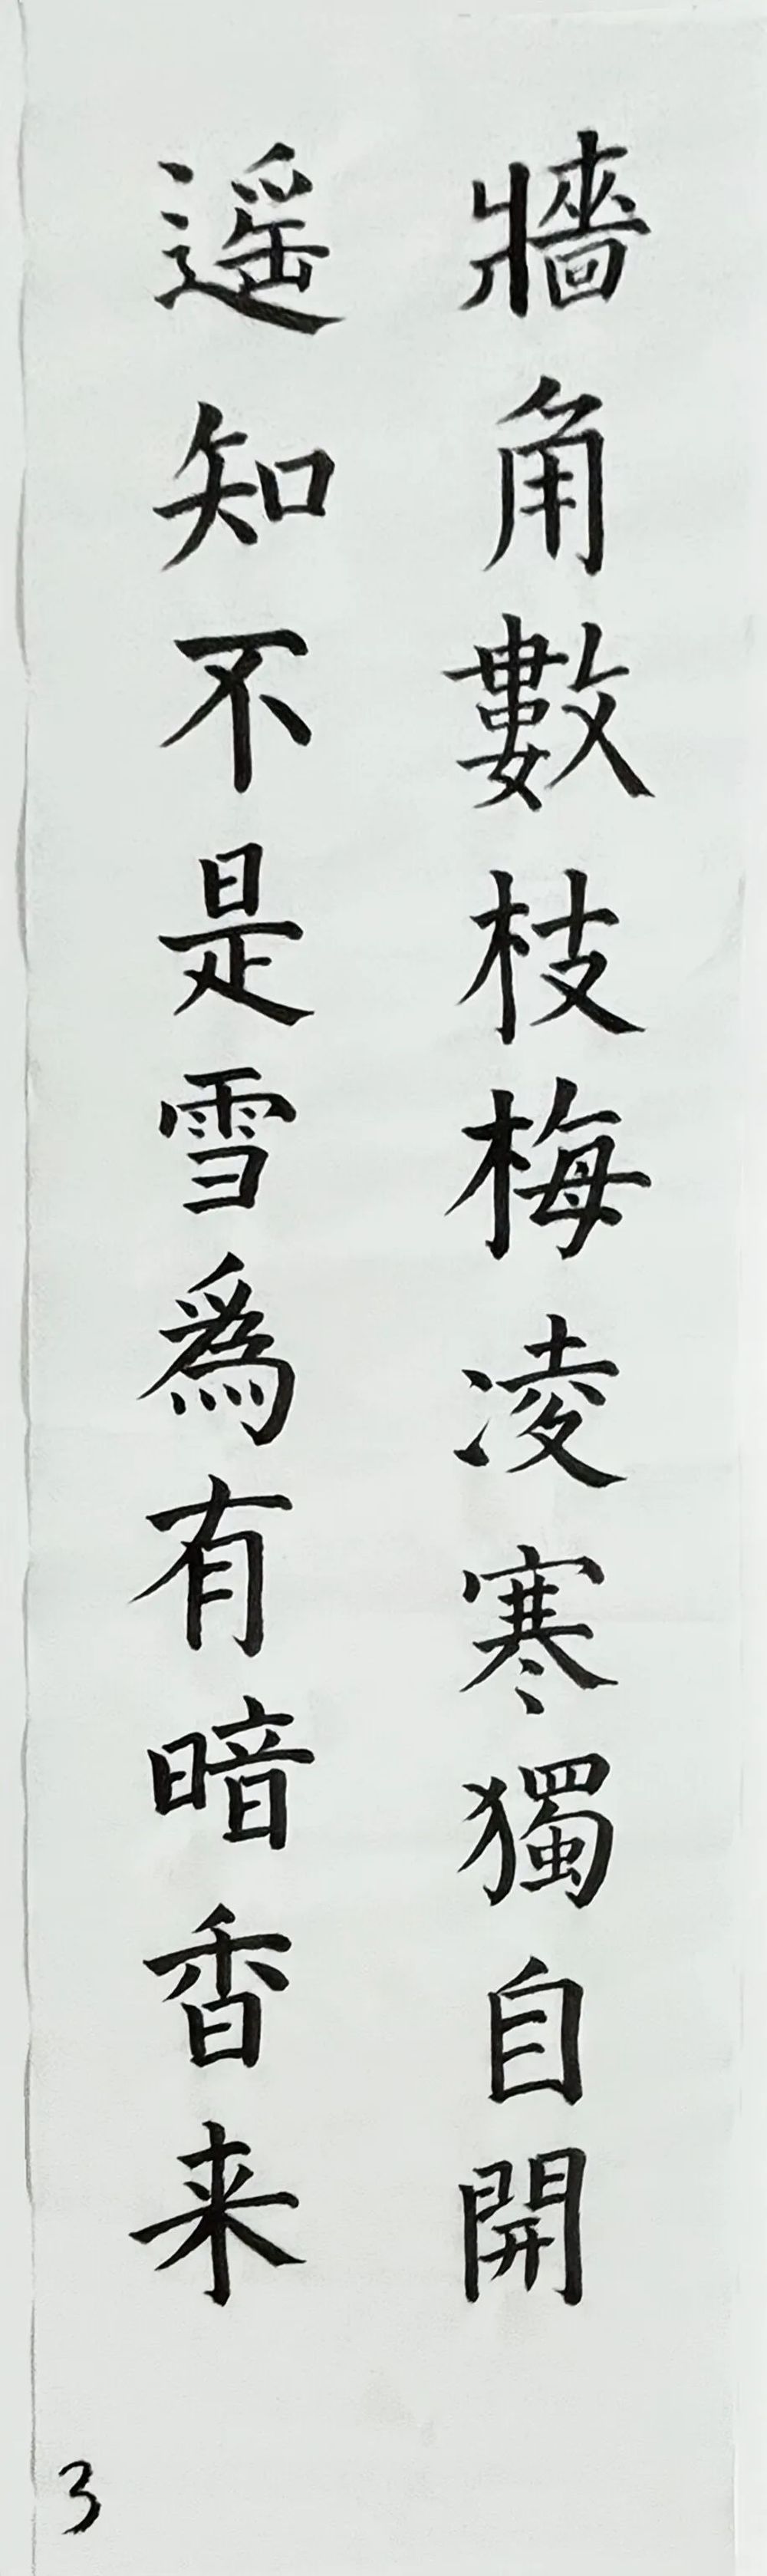 牆角數枝梅凌寒獨自開
遥知不是雪爲有暗香来
3